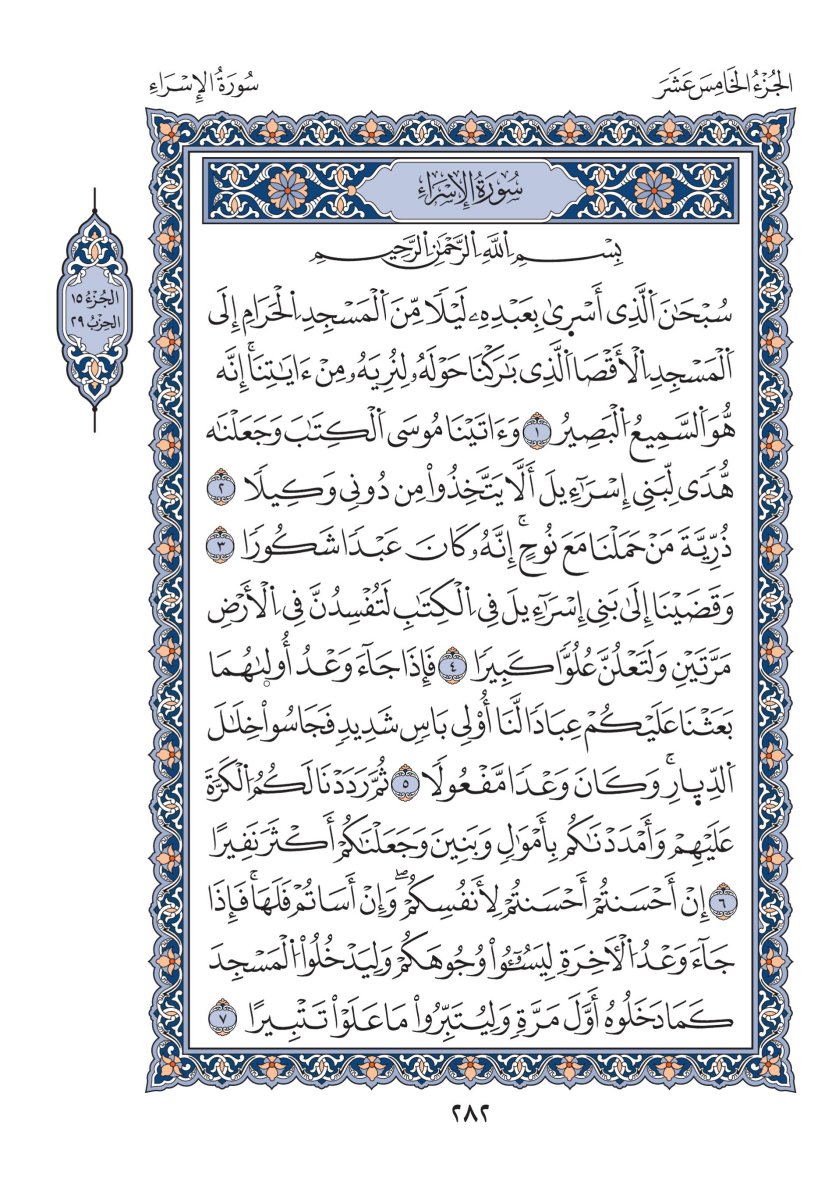 الجُزْءُ الخَامِسَ عَشَرَ
سُورَةُ الإِسْرَاءِ
سُورَةُ الإِسْرَاءِ
بِسْمِ اِ۬للَّهِ اِ۬لرَّحْمَٰنِ اِ۬لرَّحِيمِ
سُبْحَٰنَ اَ۬لَّذِي أَسْر۪ىٰ بِعَبْدِهِۦ لَيْلٗا مِّنَ اَ۬لْمَسْجِدِ اِ۬لْحَرَامِ إِلَى
اَ۬لْمَسْجِدِ اِ۬لْأَقْصَا اَ۬لَّذِي بَٰرَكْنَا حَوْلَهُۥ لِنُرِيَهُۥ مِنْ ءَايَٰتِنَاۚ إِنَّه
هُّوَ اَ۬لسَّمِيعُ اُ۬لْبَصِيرُ ١ وَءَاتَيْنَا مُوسَى اَ۬لْكِتَٰبَ وَجَعَلْنَٰه
هُّدٗى لِّبَنِي إِسْرَآءِيلَ أَلَّا يَتَّخِذُواْ مِن دُونِي وَكِيلٗا ٢
ذُرِّيَّةَ مَنْ حَمَلْنَا مَعَ نُوحٍۚ إِنَّهُۥ كَانَ عَبْدٗا شَكُورٗا ٣
وَقَضَيْنَا إِلَىٰ بَنِي إِسْرَآءِيلَ فِي اِ۬لْكِتَٰبِ لَتُفْسِدُنَّ فِي اِ۬لْأَرْضِ
مَرَّتَيْنِ وَلَتَعْلُنَّ عُلُوّٗا كَبِيرٗا ٤ فَإِذَا جَآءَ وَعْدُ أُولَىٰهُمَا
بَعَثْنَا عَلَيْكُمْ عِبَادٗا لَّنَا أُوْلِي بَاسٖ شَدِيدٖ فَجَاسُواْ خِلَٰلَ
اَ۬لدِّيٜارِۚ وَكَانَ وَعْدٗا مَّفْعُولٗا ٥ ثُمَّ رَدَدْنَا لَكُمُ اُ۬لْكَرَّةَ
عَلَيْهِمْ وَأَمْدَدْنَٰكُم بِأَمْوَٰلٖ وَبَنِينَ وَجَعَلْنَٰكُمْ أَكْثَرَ نَفِيرًا
٦ إِنْ أَحْسَنتُمْ أَحْسَنتُمْ لِأَنفُسِكُمْۖ وَإِنْ أَسَاتُمْ فَلَهَاۚ فَإِذَا
جَآءَ وَعْدُ اُ۬لْأٓخِرَةِ لِيَسُـُٔواْ وُجُوهَكُمْ وَلِيَدْخُلُواْ اُ۬لْمَسْجِدَ
كَمَا دَخَلُوهُ أَوَّلَ مَرَّةٖ وَلِيُتَبِّرُواْ مَا عَلَوْاْ تَتْبِيرًا ٧
الجُزْءُ ١٥
الحِزْبُ ٢٩
٢٨٢